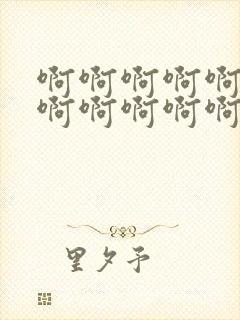 啊啊啊啊啊
啊啊啊啊啊
里夕予